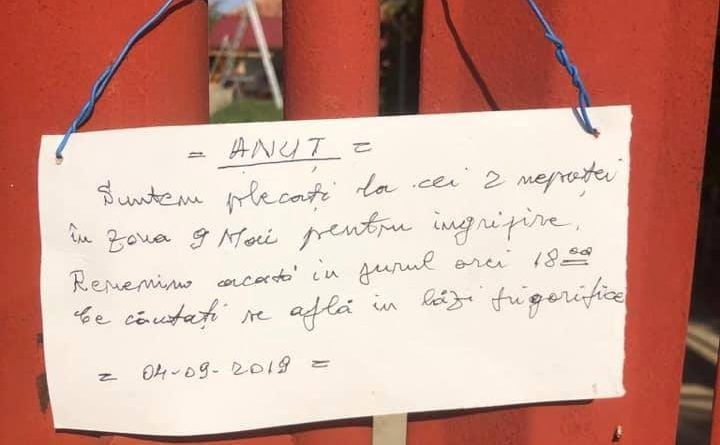 = ANUȚ =
Suntem plecați la cei 2 nepoței
în zona 9 Mai pentru îngrijire.
Revenim acasă în jurul orei 18⁰⁰
Ce căutați se află în lăzi frigorifice
= 04-09-2019 =